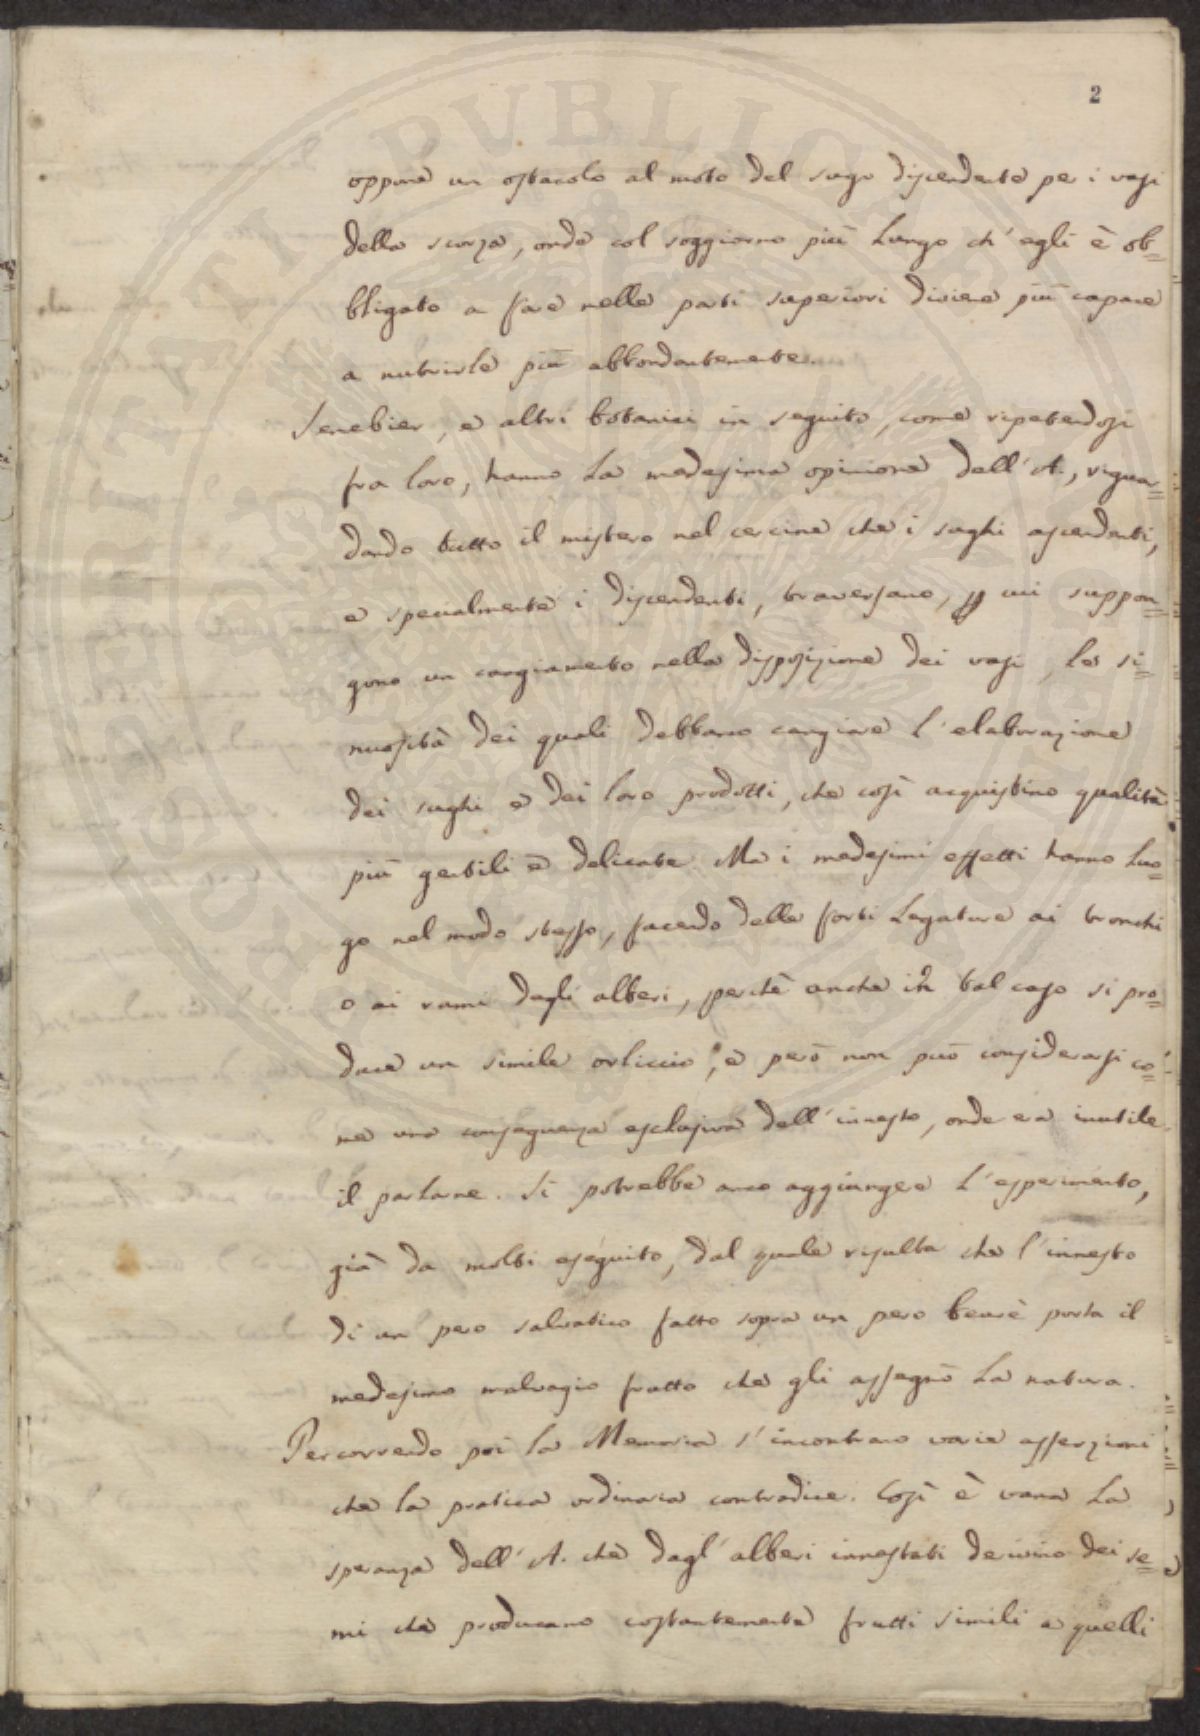 2
oppone un ostacolo al moto del sugo discendente per i vasi
della scorza, onde col soggiorno più lungo ch'egli è ob=
bligato a fare nelle parti superiori diviene più capace
a nutrirle più abbondantemente.
Senebier, e altri botanici in seguito, come ripetendosi
fra loro, hanno la medesima opinione dell'A., riguar=
dando tutto il mistero nel cercine che i sughi ascendenti,
e specialmente i discendenti, traversano, cui suppon=
gono un cangiamento nella disposizione dei vasi, le si=
nuosità dei quali debbano cangiare l'elaborazione
dei sughi e dei loro prodotti, che così acquistino qualità
più gentili e delicate. Ma i medesimi effetti hanno luo=
go nel modo stesso, facendo delle forti legature ai tronchi
o ai rami degli alberi, perchè anche in tal caso si pro=
duce un simile orliccio; e però non può considerarsi co=
me una conseguenza esclusiva dell'innesto, onde era inutile
il parlarne. Si potrebbe anco aggiungere l'esperimento,
già da molti eseguito, dal quale risulta che l'innesto
di un pero salvatico fatto sopra un pero beurè porta il
medesimo malvagio frutto che gli assegnò la natura.
Percorrendo poi la Memoria s'incontrano varie asserzioni
che la pratica ordinaria contradice. Così è vana la
speranza dell'A. che dagl'alberi innestati derivino dei se=
mi che producano costantemente frutti simili a quelli